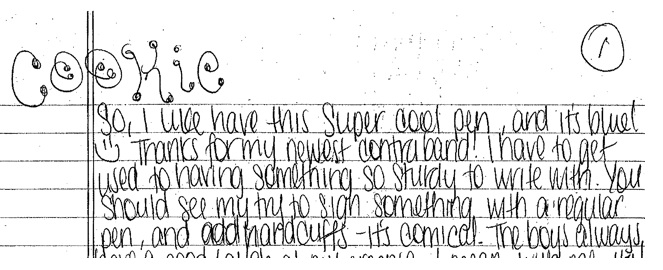 Cookie
1
So, I like have this super cool pen, and it's blue!
Thanks for my newest contraband! I have to get
used to having something so sturdy to write with. You
should see my try to sign something with a regular
pen, and add handcuffs - it's comical. The boys always
have a good